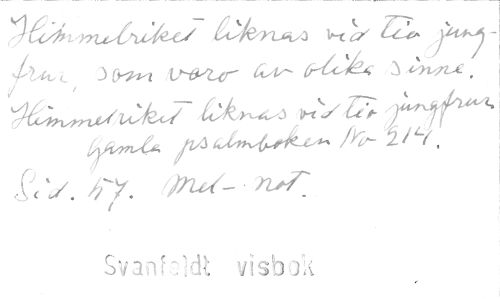 Himmelriket liknas vid tio jung-
frur, som voro av olika sinne.
Himmelriket liknas vid tio jungfrur
Gamla psalmboken No 214.
Sid. 57. Mel- not.
Svanfeldt visbok